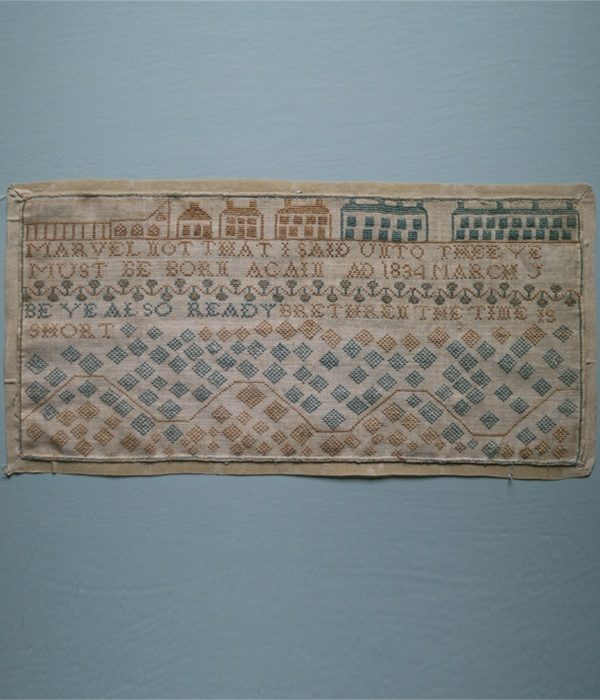 MARVEL NOT THAT I SAID UNTO THEE YE
MUST BE BORN AGAIN AD 1834 MARCH 3
BE YE ALSO READY BRETHREN THE TIME IS
SHORT